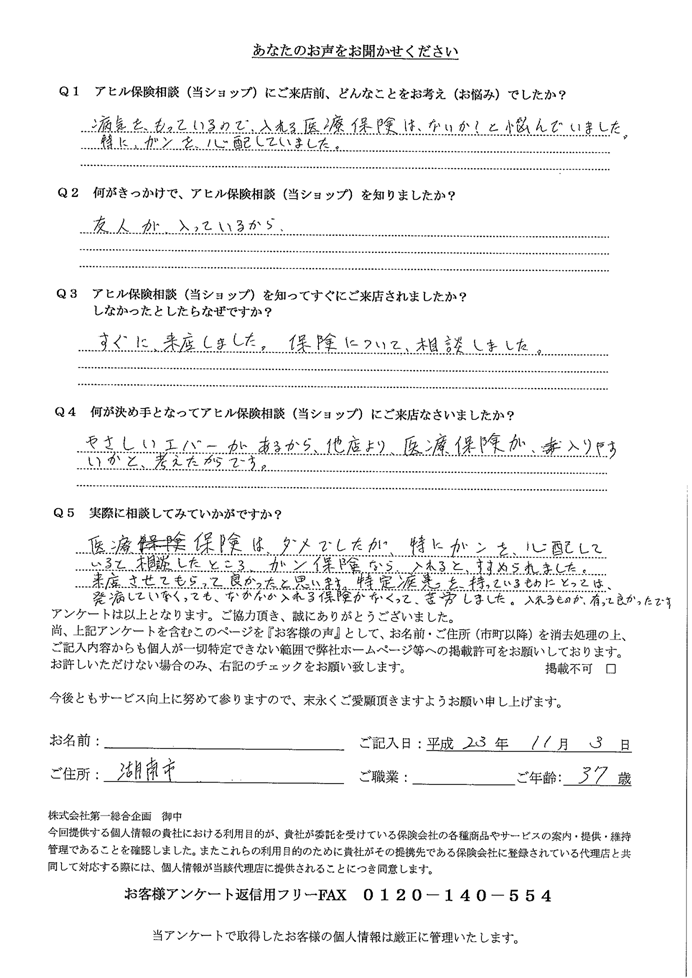 あなたのお声をお聞かせください
Q1 アヒル保険相談(当ショップ)にご来店前、どんなことをお考え(お悩み)でしたか?
病気をもっているので、入れる医療保険は、ないか!と悩んでいました。
特に、ガンを、心配していました。
Q2 何がきっかけで、アヒル保険相談(当ショップ)を知りましたか?
友人が、入っているから、
Q3 アヒル保険相談(当ショップ)を知ってすぐにご来店されましたか?
しなかったとしたらなぜですか?
すぐに、来店しました。保険について、相談しました。
Q4 何が決め手となってアヒル保険相談(当ショップ)にご来店なさいましたか?
やさしいエバーがあるから、他店より、医療保険が、入りやす
いかと、考えたからです。
Q5 実際に相談してみていかがですか?
医療保険保険は、ダメでしたが、特にガンを、心配して
いると相談したところ、ガン保険なら、入れると、すすめられました。
来店させてもらって良かったと思います。特定疾患を、持っているものにとっては、
発病していなくっても、なかなか入れる保険がなくって、苦労しました。入れるものが、有って良かったです
アンケートは以上となります。ご協力頂き、誠にありがとうございました。
尚、上記アンケートを含むこのページを『お客様の声』として、お名前・ご住所(市町以降)を消去処理の上、
ご記入内容からも個人が一切特定できない範囲で弊社ホームページ等への掲載許可をお願いしております。
お許しいただけない場合のみ、右記のチェックをお願い致します。 掲載不可 □
今後ともサービス向上に努めて参りますので、末永くご愛願頂きますようお願い申し上げます。
お名前: ご記入日:平成 23 年 11 月 3 日
ご住所: 湖南市 ご職業: ご年齢: 37 歳
株式会社第一総合企画 御中
今回提供する個人情報の貴社における利用目的が、貴社が委託を受けている保険会社の各種商品やサービスの案内・提供・維持
管理であることを確認しました。またこれらの利用目的のために貴社がその提携先である保険会社に登録されている代理店と共
同して対応する際には、個人情報が当該代理店に提供されることにつき同意します。
お客様アンケート返信用フリーFAX 0120-140-554
当アンケートで取得したお客様の個人情報は厳正に管理いたします。